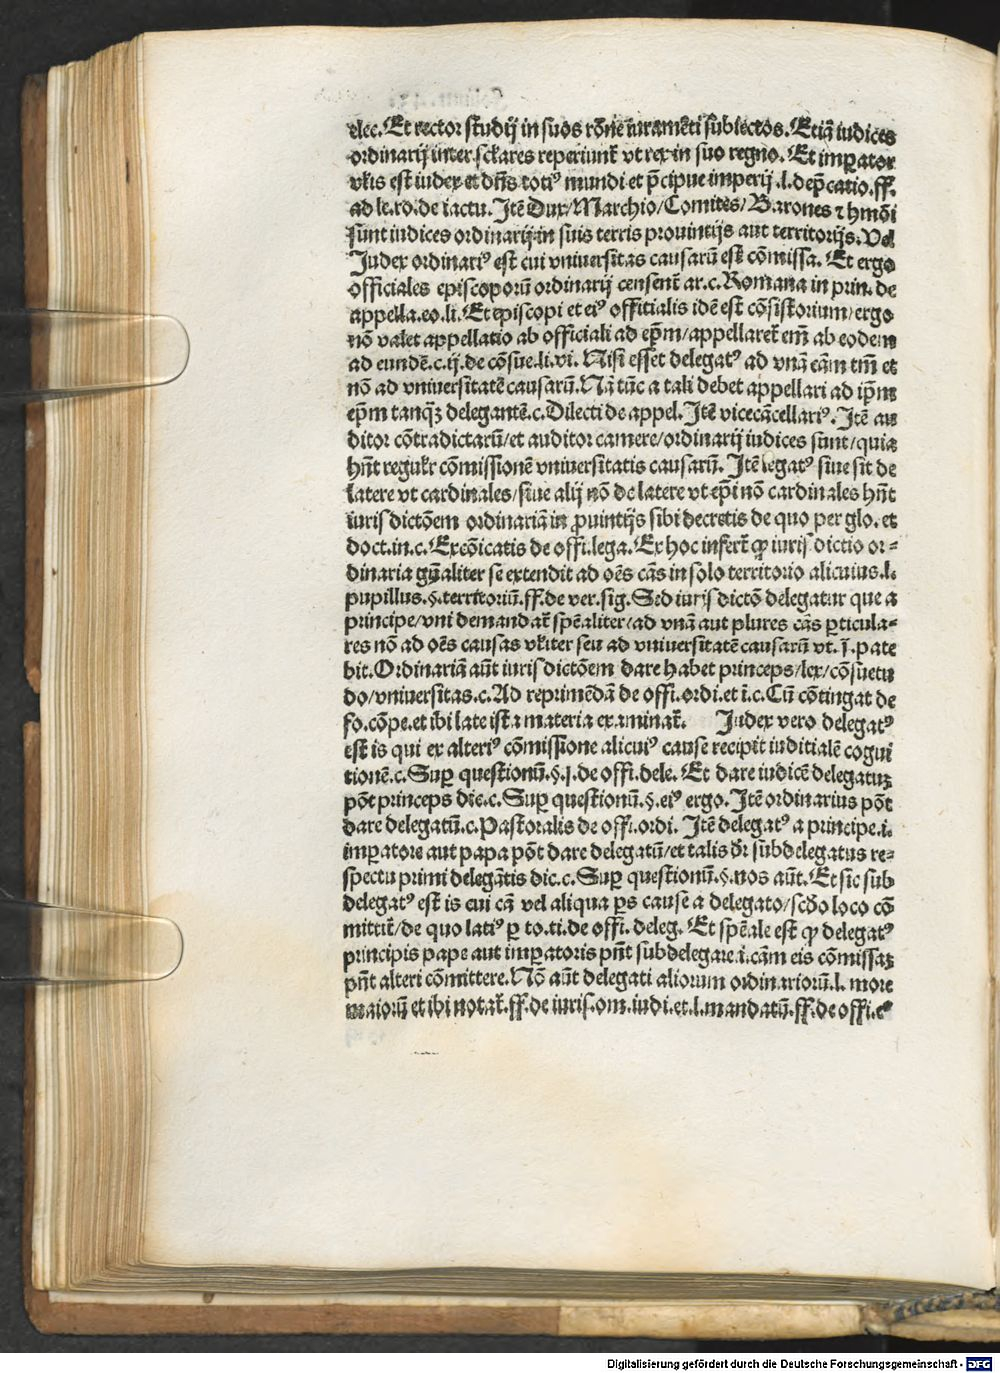 elec. Et rector studij in suos rõne iuramẽti subiectos. Etiã iudices
ordinarij inter sclares reperiunt᷑ vt rex in suo regno. Et imꝑator
vl̃is est iudex et dñs totiꝰ mundi et p̃cipue imperij .l. dep̃catio. ff.
ad le. ro. de iactu. Itẽ Dux/Marchio/Comites/Barones ⁊ hmõi
sunt iudices ordinarij in suis terris prouintijs aut territorijs. Vel
Iudex ordinariꝰ est cui vniuersitas causarũ est cõmissa. Et ergo
officiales episcoporũ ordinarij censent᷑ ar. c. Romana in prin. de
appella. eo. li. Et episcopi et eiꝰ offitialis idẽ est cõsistorium/ergo
nõ valet appellatio ab officiali ad ep̃m/appellaret᷑ em̃ ab eodem
ad eundẽ. c. ij. de cõsue. li. vi. Nisi esset delegatꝰ ad vnã cãm tm̃ et
nõ ad vniuersitatẽ causarũ. Nã tũc a tali debet appellari ad ip̃m
ep̃m tanq̃ꝫ delegantẽ. c. Dilecti de appel. Itẽ vicecãcellariꝰ. Itẽ au
ditor cõtradictarũ/et auditor camere/ordinarij iudices sunt/quia
hñt regul̃r cõmissionẽ vniuersitatis causarũ. Itẽ legatꝰ siue sit de
latere vt cardinales/siue alij nõ de latere vt ep̃i nõ cardinales hñt
iurisdictõem ordinariã in ꝓuintijs sibi decretis de quo per glo. et
doct. in. c. Excõicatis de offi. lega. Ex hoc infert᷑ ꝙ iurisdictio or⸗
dinaria gñaliter se extendit ad oẽs cãs in solo territorio alicuius. l.
pupillus. §. territoriũ. ff. de ver. sig. Sed iurisdictõ delegatur que a
principe/vni demandat᷑ spẽaliter/ad vnã aut plures cãs ꝑticula⸗
res nõ ad oẽs causas vl̃iter seu ad vniuersitatẽ causarũ vt. ĩ. pate
bit. Ordinariã aũt iurisdictõem dare habet princeps/lex/cõsuetu
do/vniuersitas. c. Ad reprimẽdã de offi. ordi. et ĩ. c. Cũ cõtingat de
fo. cõpe. et ibi late ista materia examinat᷑. Iudex vero delegatꝰ
est is qui ex alteriꝰ cõmissione alicuiꝰ cause recipit iuditialẽ cogni
tionẽ. c. Suꝑ questionũ. §. j. de offi. dele. Et dare iudicẽ delegatuꝫ
põt princeps dic. c. Suꝑ questionũ. §. eiꝰ ergo. Itẽ ordinarius põt
dare delegatũ. c. Pastoralis de offi. ordi. Itẽ delegatꝰ a principe .i.
imꝑatore aut papa põt dare delegatũ/et talis dr̃ subdelegatus re⸗
spectu primi delegãtis dic. c. Suꝑ questionũ. §. nos aũt. Et sic sub
delegatꝰ est is cui cã vel aliqua ꝑs cause a delegato/scđo loco cõ
mittit᷑/de quo latiꝰ ꝑ to. ti. de offi. deleg. Et spẽale est ꝙ delegatꝰ
principis pape aut imꝑatoris pñt subdelegare .i. cãm eis cõmissaꝫ
pñt alteri cõmittere. Nõ aũt delegati aliorum ordinariorũ. l. more
maiorũ et ibi notat᷑. ff. de iuris. om. iudi. et. l. mandatũ. ff. de offi. eꝰ
Digitalisierung gefördert durch die Deutsche Forschungsgemeinschaft - DFG